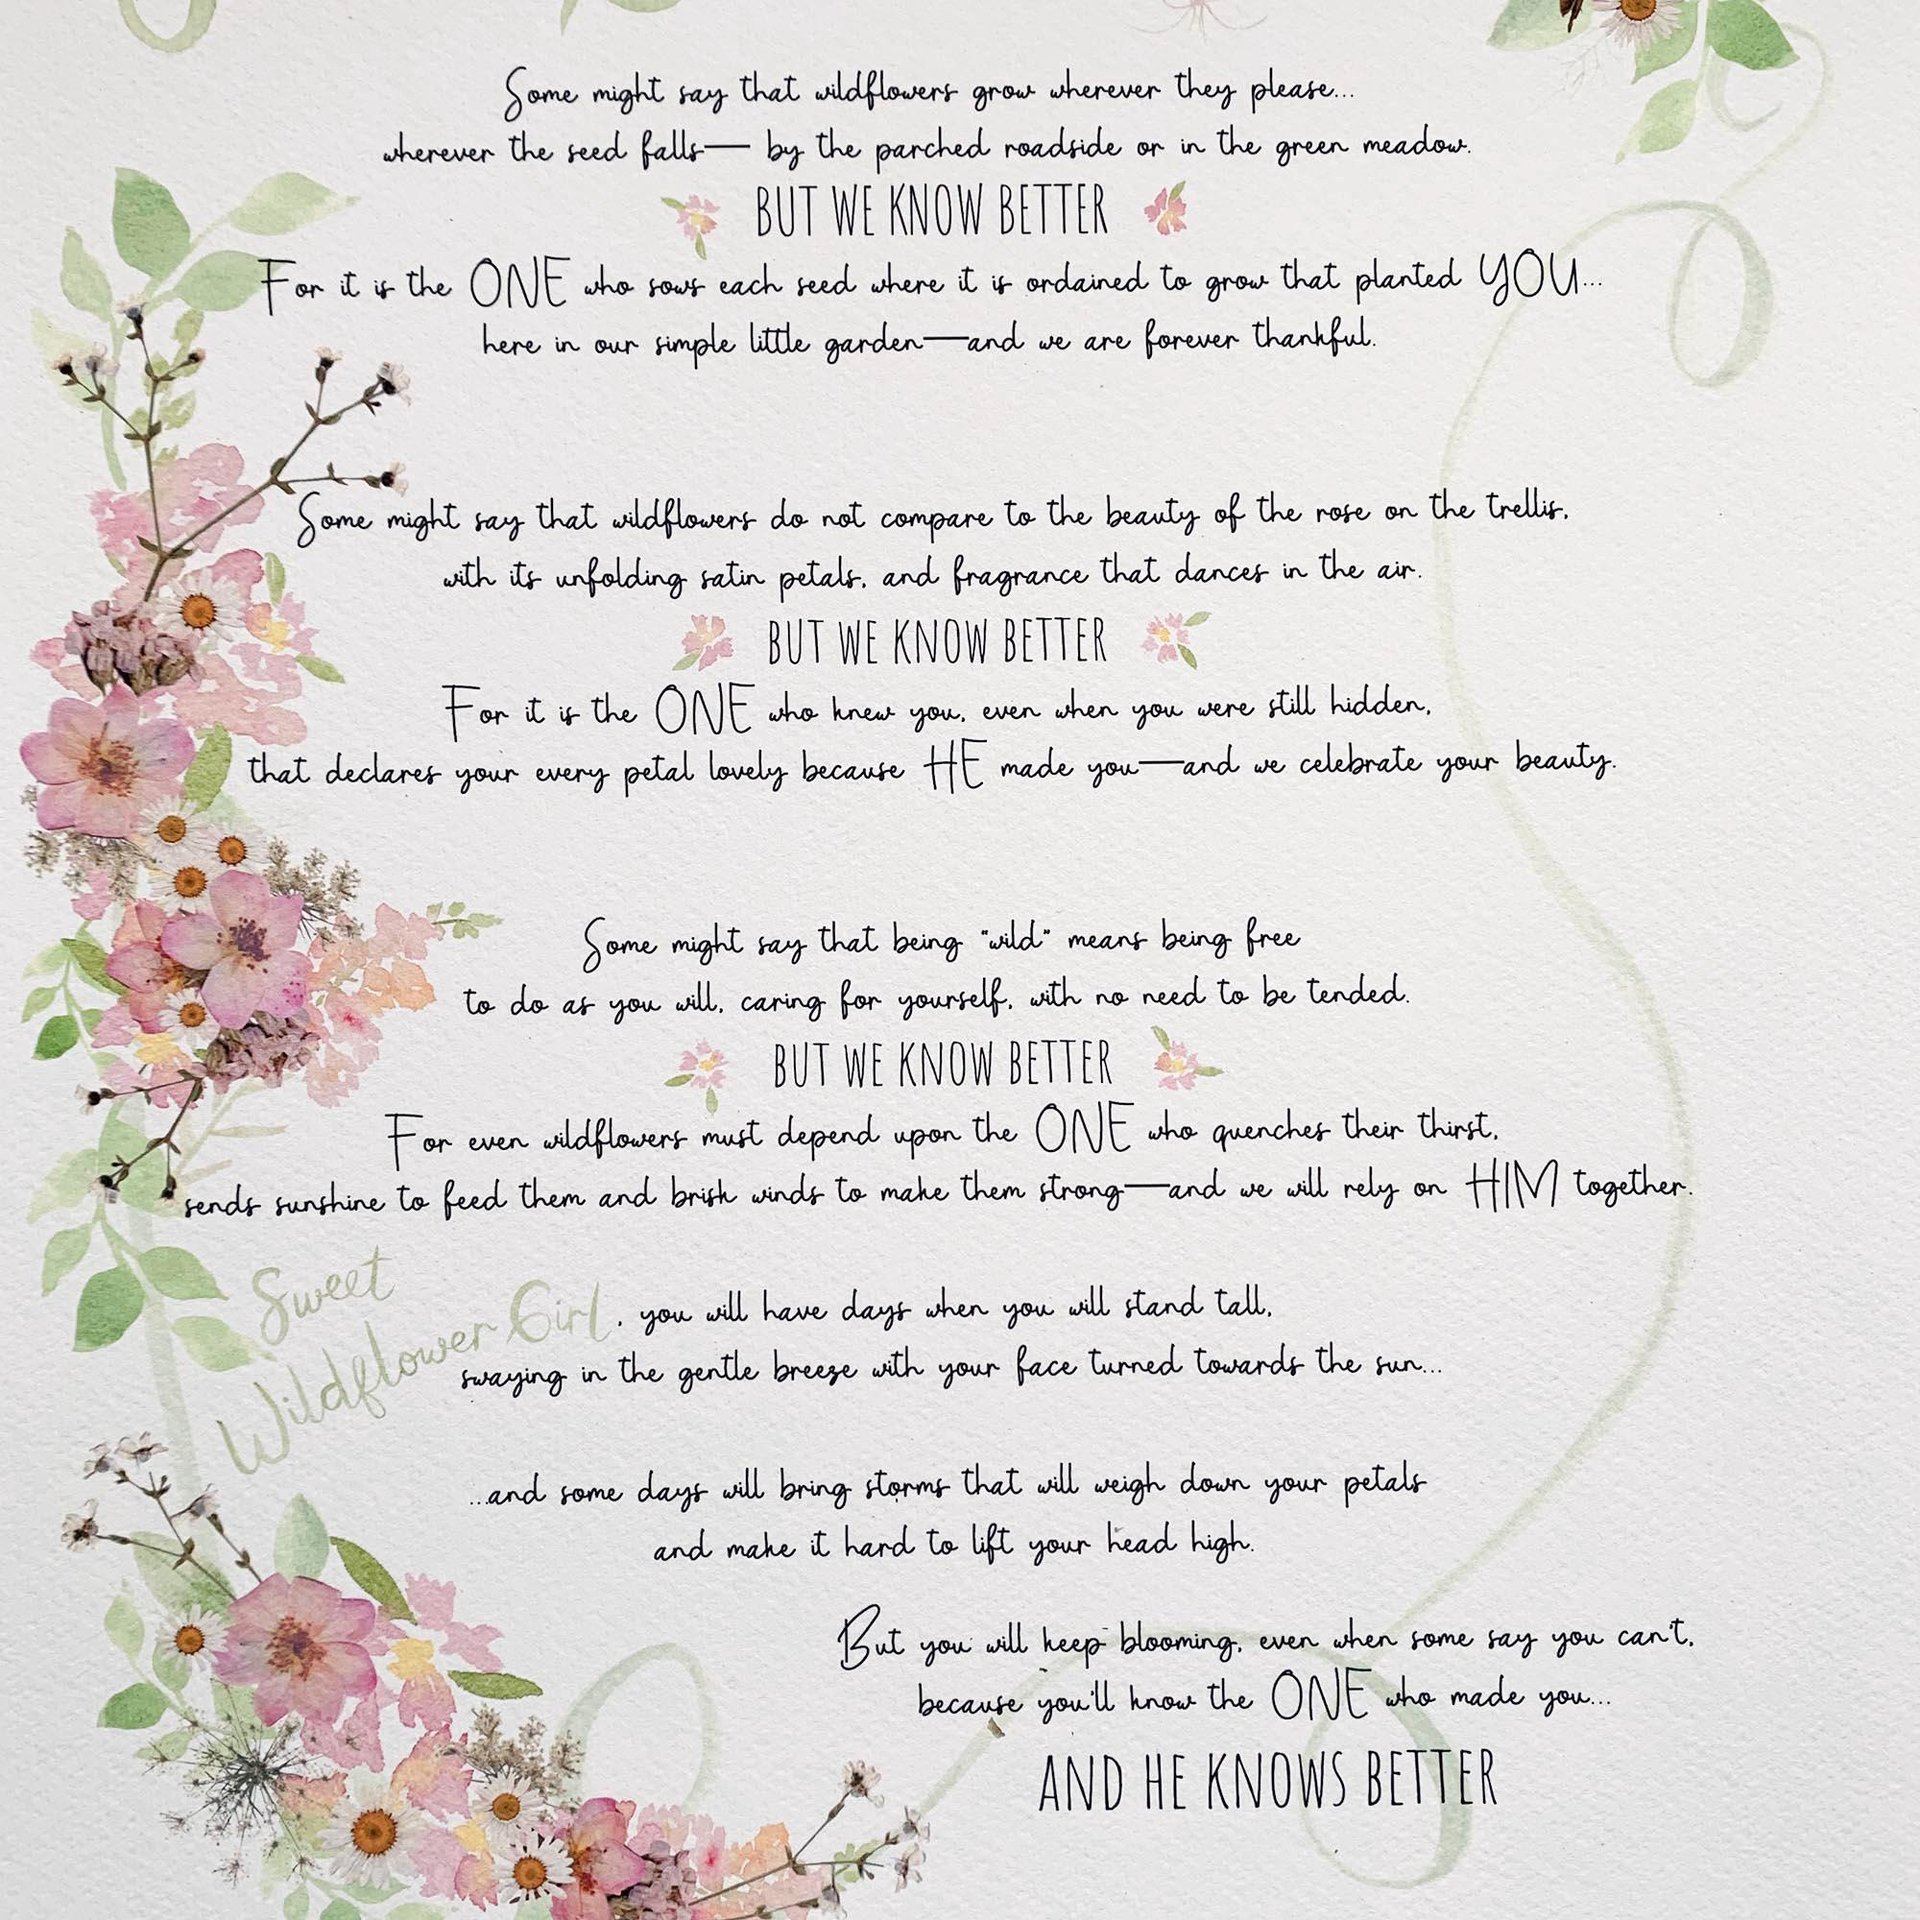 Some might say that wildflowers grow wherever they please...
wherever the seed falls— by the parched roadside or in the green meadow.
BUT WE KNOW BETTER
For it is the ONE who sows each seed where it is ordained to grow that planted YOU...
here in our simple little garden—and we are forever thankful.
Some might say that wildflowers do not compare to the beauty of the rose on the trellis,
with its unfolding satin petals, and fragrance that dances in the air.
BUT WE KNOW BETTER
For it is the ONE who knew you, even when you were still hidden,
that declares your every petal lovely because HE made you—and we celebrate your beauty.
Some might say that being "wild" means being free
to do as you will, caring for yourself, with no need to be tended.
BUT WE KNOW BETTER
For even wildflowers must depend upon the ONE who quenches their thirst,
sends sunshine to feed them and brisk winds to make them strong—and we will rely on HIM together.
Sweet
Wildflower Girl, you will have days when you will stand tall,
swaying in the gentle breeze with your face turned towards the sun...
...and some days will bring storms that will weigh down your petals
and make it hard to lift your head high.
But you will keep blooming, even when some say you can't,
because you'll know the ONE who made you...
AND HE KNOWS BETTER